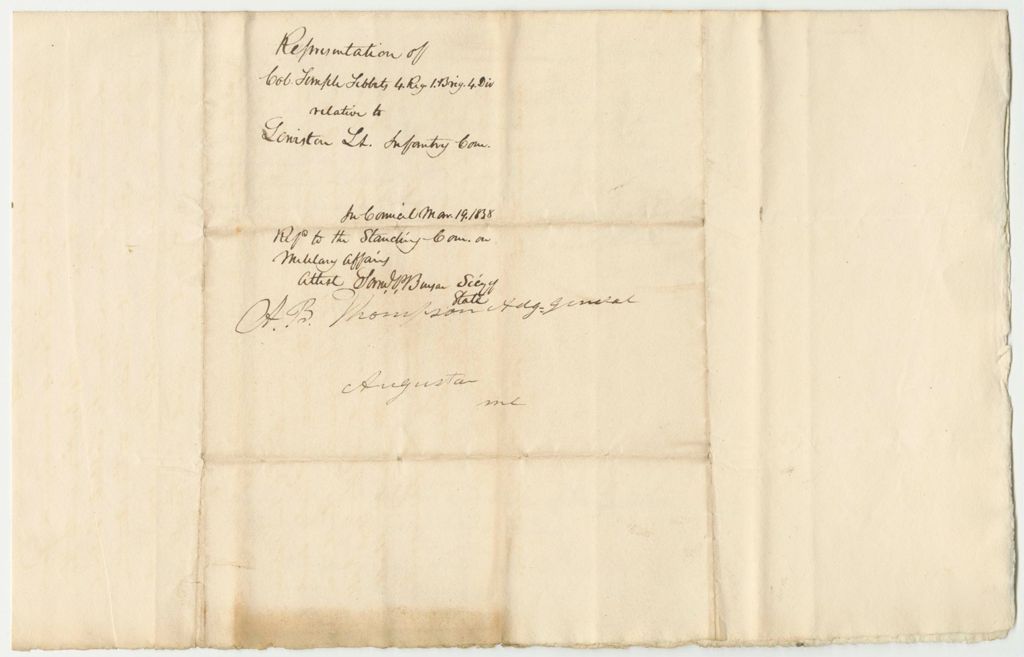 Representation of
Col. Temple Tebbets 4. Reg. 1. Brig. 4. Div
relative to
Lewiston Lt. Infantry Com.
In Council Mar. 19. 1838
Refd to the Standing Com. on
Military Affairs
Attest Saml P. Benson Secy
State
A. B. Thompson Adg-General
Augusta
me